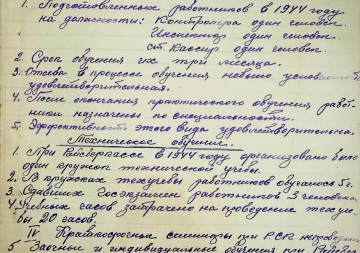 1. Подготовленных работников в 1944 году
на должности: Контролера один человек.
Инспектор один человек.
ст. Кассир один человек.
2. Срок обучения их три месяца.
3. Отсева в процессе обучения не было
удовлетворительная.
4. После окончания практического обучения работ-
ники назначены по специальности.
5. Эффективность этого вида удовлетворительна.
Техническое обучение.
1. При Райсберкассе в 1944 году организовано было
один кружок технической учебы.
2. В кружках техучебы работников обучалось 5 ч.
3. Сдавших Госэкзамен работников 3 человека.
4. Учебных часов затрачено на проведение техуче-
бы 20 часов.
IV Краткосрочные семинары при РСК
5 Заочные и индивидуальные обучения при